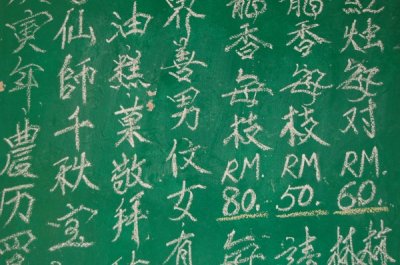 烛每对 RM. 60.
香每枝 RM. 50.
香每枝 RM. 80. 每
界善男伩女有
油糕菓敬拜
仙師千秋宝
寅年農历